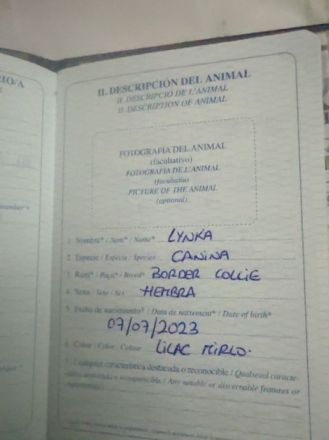 IO/A
II. DESCRIPCIÓN DEL ANIMAL
II. DESCRIPCIÓ DE L'ANIMAL
II. DESCRIPTION OF ANIMAL
FOTOGRAFÍA DEL ANIMAL
(facultativo)
FOTOGRAFIA DE L'ANIMAL
(facultatiu)
PICTURE OF THE ANIMAL
(optional)
1. Nombre* / Nom* / Name* LYNKA
2. Especie / Espècie / Species CANINA
3. Raza* / Raça* / Breed* BORDER COLLIE
4. Sexo / Sexe / Sex HEMBRA
5. Fecha de nacimiento* / Data de naixement* / Date of birth*
07/07/2023
6. Color / Color / Colour LILAC MIRLO.
7. Cualquier característica destacada o reconocible / Qualsevol caracte-
/ Any notable or discernable features or